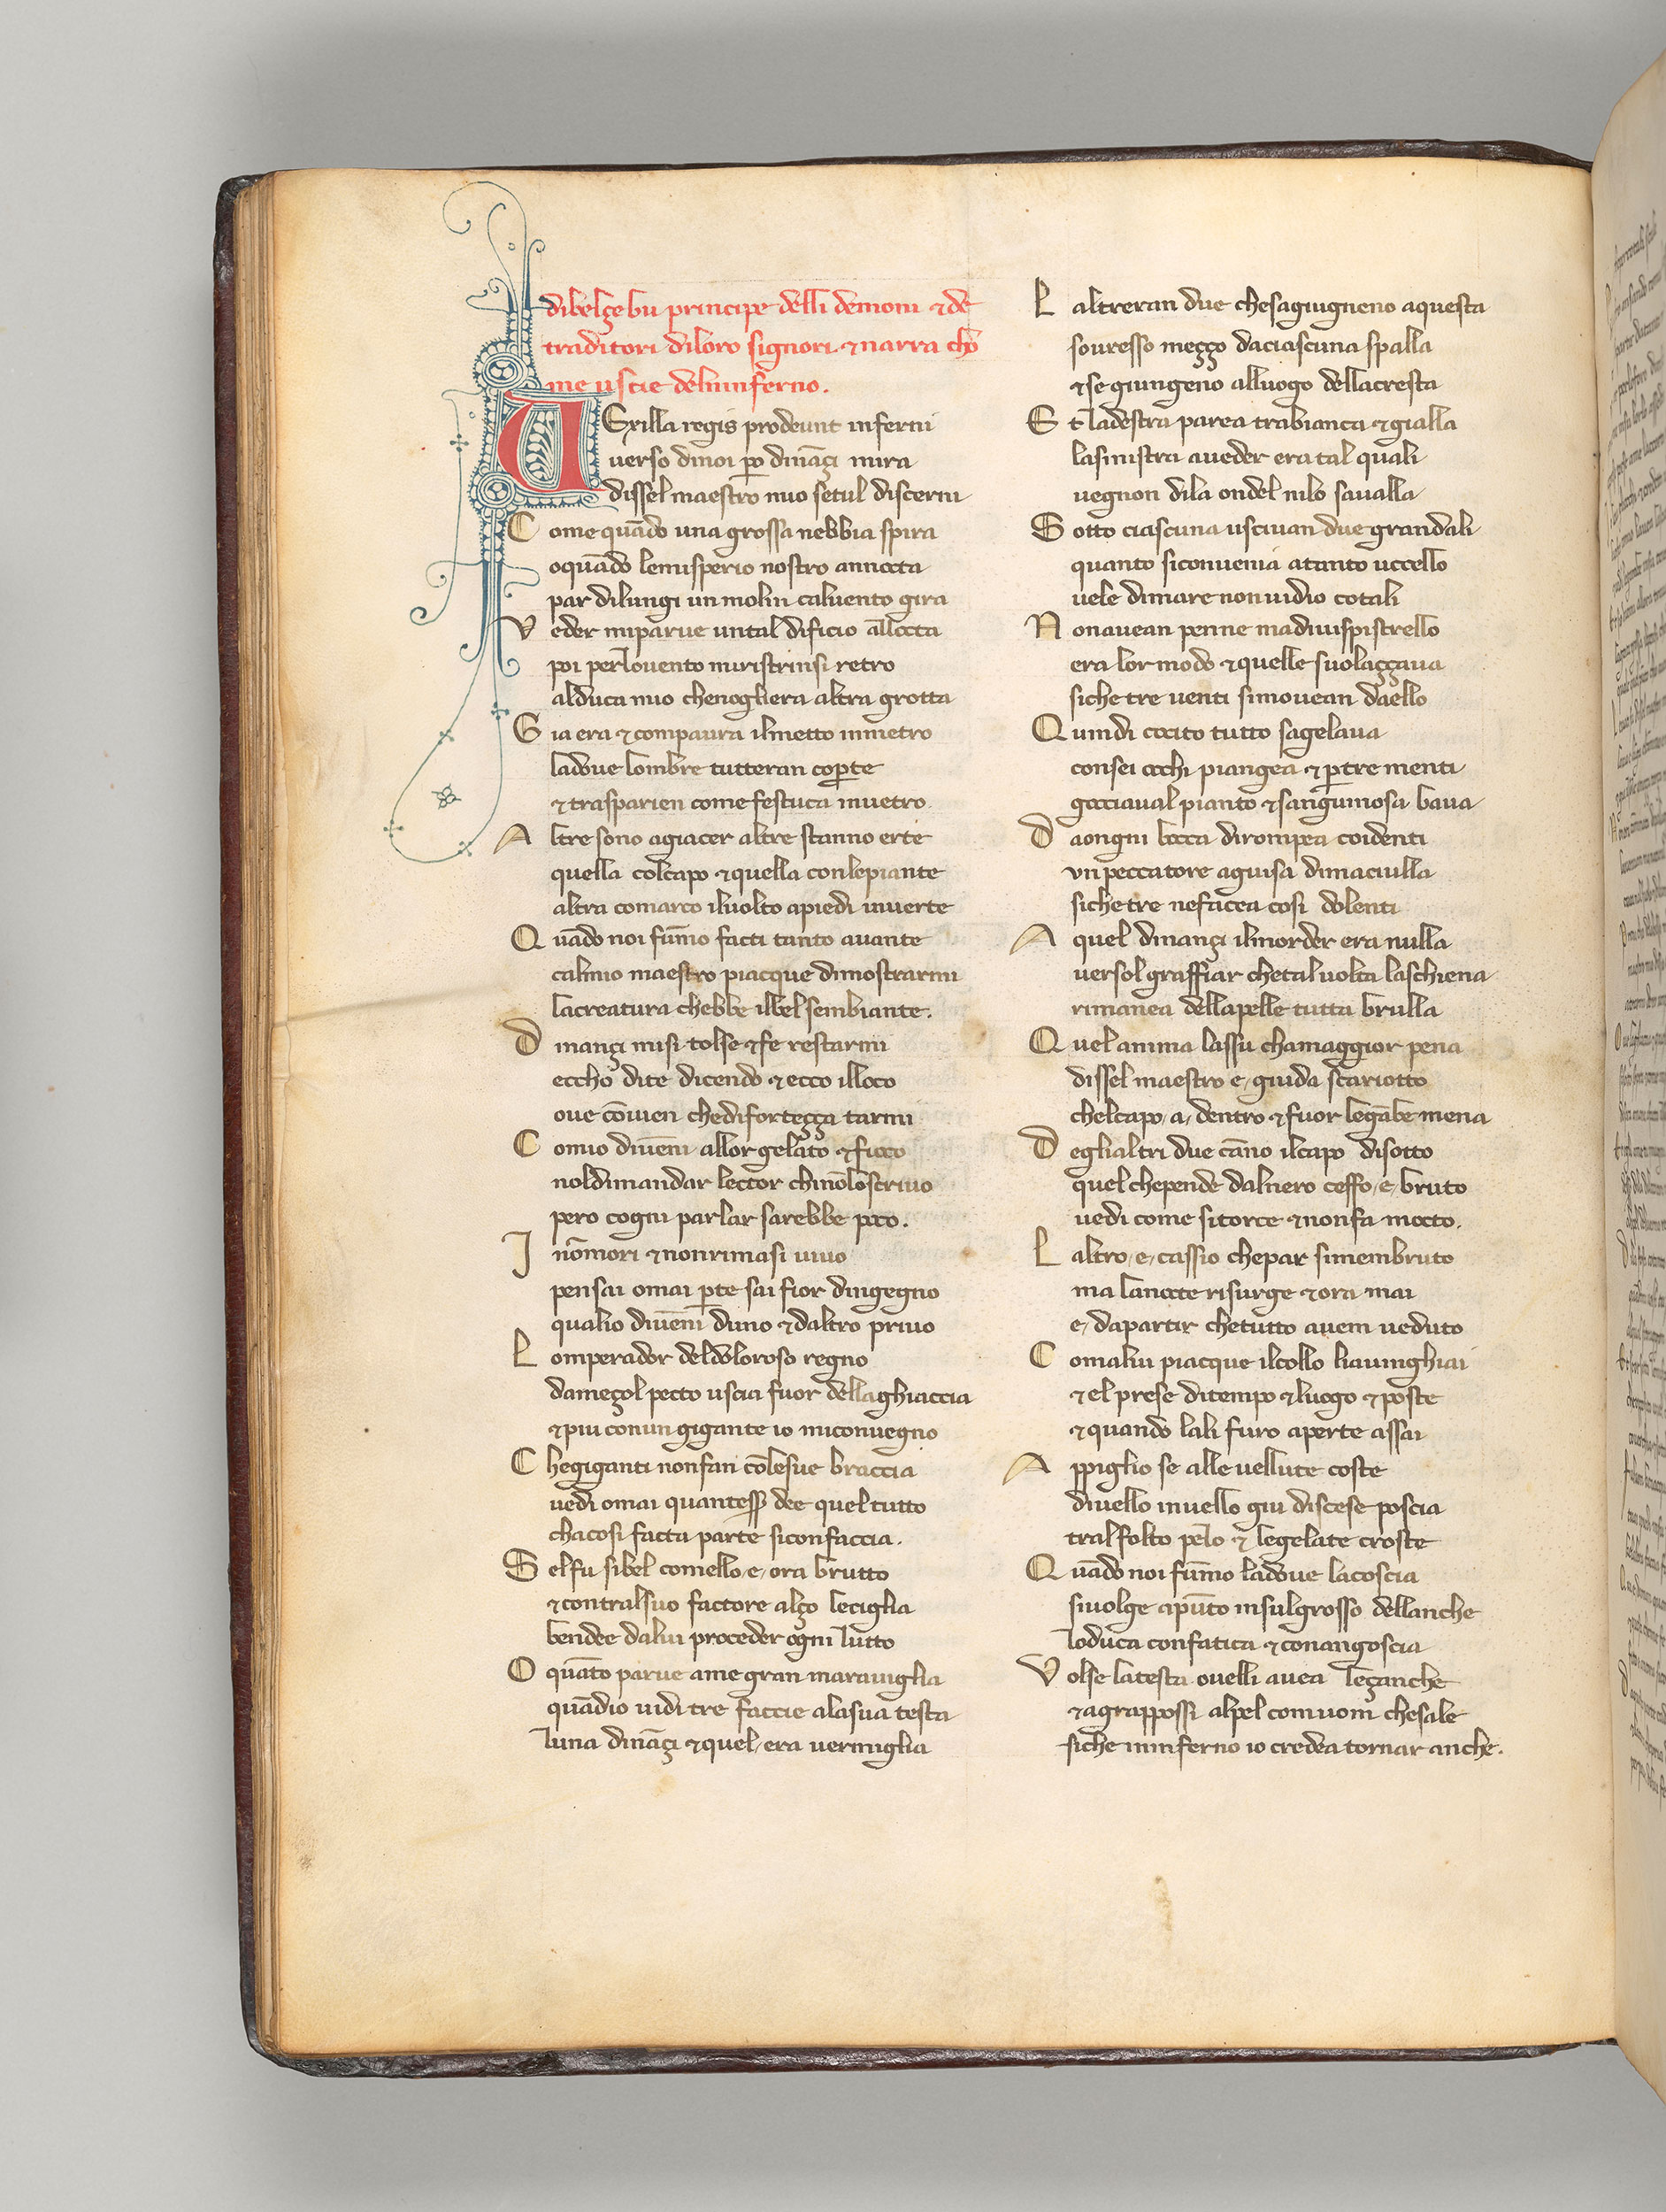 dibelçebu principe delli demoni ⁊ de
traditori diloro signori ⁊ narra cho
me uscie delinferno.
VExilla regis prodeunt inferni
uerso dinoi po dināçi mira
dissel maestro mio setul discerni
Come quādo una grossa nebbia spira
oquādo lemisperio nostro annocta
par dilungi un molin caluento gira
Veder miparue untal dificio allocta
poi perlouento miristrinsi retro
alduca mio chenogliera altra grotta
Gia era ⁊ compaura ilmetto inmetro
ladoue lombre tutteran coperte
⁊ trasparien come festuca inuetro
Altre sono agiacer altre stanno erte
quella colcapo ⁊ quella conlepiante
altra comarco iluolto apiedi inuerte
Quādo noi fūmo facti tanto auante
calmio maestro piacque dimostrarmi
lacreatura chebbe ilbel sembiante.
Dinançi misi tolse ⁊ fe restarmi
eccho dite dicendo ⁊ ecco illoco
oue cōuien chediforteçça tarmi
Comio diuēni allor gelato ⁊ fioco
noldimandar lector chinoloscriuo
pero cogni parlar sarebbe poco.
Inōmori ⁊ nonrimasi uiuo
pensai omai pte sai fior dingegno
qualio diuēni diuno ⁊ daltro priuo
Lomperador deldoloroso regno
dameçol pecto uscia fuor dellaghiaccia
⁊ piu conun gigante io miconuegno
Chegiganti nonfan cōlesue braccia
uedi omai quantess dee quel tutto
chacosi facta parte siconfaccia.
Selfu sibel comello e ora brutto
⁊ contralsuo factore alço leciglia
bendee dalui proceder ogni lutto
O quāto parue ame gran marauiglia
quādio uidi tre faccie alasua testa
luna dināçi ⁊ quel era uermiglia
Laltreran due chesagiugneno aquesta
souresso meçço daciascuna spalla
⁊ segiungeno alluogo dellacresta
Et ladestra parea trabianca ⁊ gialla
lasinistra aueder era tal quali
uegnon dila ondel nilo saualla
Sotto ciascuna usciuan due grandali
quanto siconuenia atanto uccello
uele dimare nonuidio cotali
Nonauean penne madiuispistrello
era lor modo ⁊ quelle suolaççaua
siche tre uenti simouean daello
Quindi cocito tutto sagelaua
consei occhi piangea ⁊ ptre menti
gocciaual pianto ⁊ sanguinosa baua
Daongni bocca dirompea coidenti
vn peccatore aguisa dimaciulla
siche tre nefacea cosi dolenti
Aquel dinançi ilmorder era nulla
uersol graffiar chetaluolta laschiena
rimanea dellapelle tutta brulla
Quelanima lassu chamaggior pena
dissel maestro e guida scariotto
chelcapo a dentro ⁊ fuor legābe mena
Deglialtri due cāno ilcapo disotto
quel chepende dalnero ceffo e bruto
uedi come sitorce ⁊ nonfa mocto.
Laltro e cassio chepar simembruto
ma lanocte risurge ⁊ ora mai
e dapartir chetutto auem ueduto
Comalui piacque ilcollo liauinghiai
⁊ el prese ditempo ⁊ luogo ⁊ poste
⁊ quando lali furo aperte assai
Appiglio se alle uellute coste
diuello inuello giu discese poscia
tralfolto pelo ⁊ legelate croste
Quādo noi fūmo ladoue lacoscia
siuolge apūto insulgrosso dellanche
loduca confatica ⁊ conangoscia
Volse latesta ouelli auea leçanche
⁊ agrappossi alpel comuom chesale
siche ninferno io credea tornar anche.